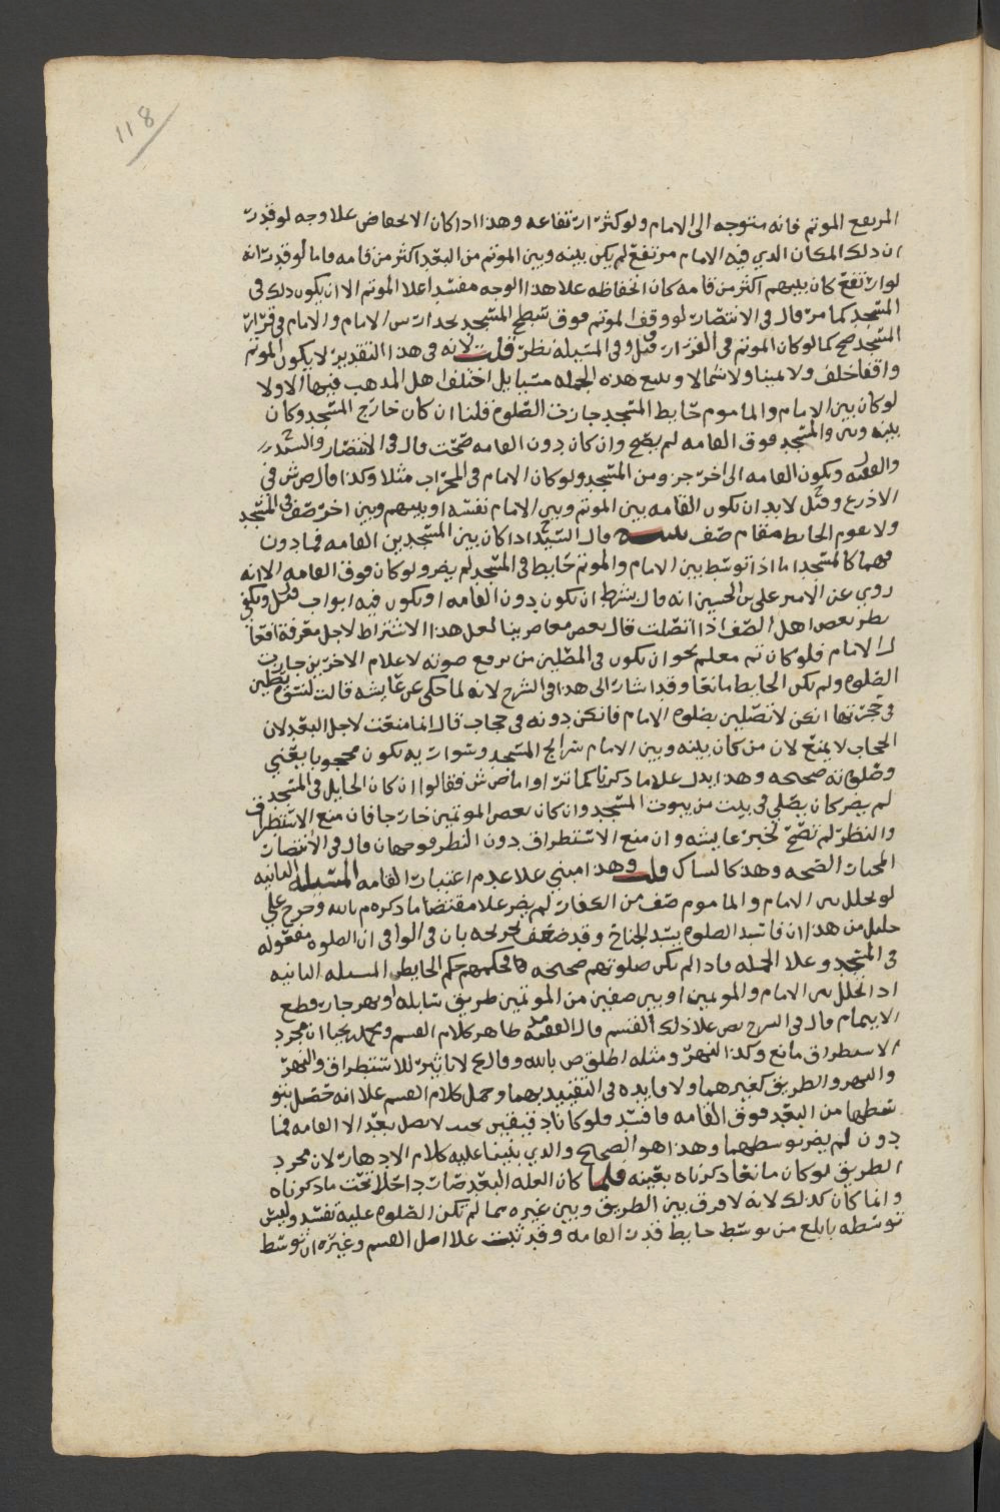 118
المرتفع الموتم فانه متوجه الى الامام ولو كثر ارتفاعه وهذا اذا كان الانخفاض علا وجه لو قدر
ان ذلك المكان الدي فيه الامام مرتفع لم يكن بينه وبين الموتم من البعد اكثر من قامه فاما لو قدر انه
لو ارتفع كان بينهم اكثر من قامه كان انخفاظه علا هذا الوجه مفسد اعلا الموتم الا ان يكون دلك في
المسجد كما مر قال في الانتصار لو وقف الموتم فوق سطح المسجد بحدا راس الامام والامام في قرار
المسجد صح كما لو كان الموتم في القرار قيل وفي المسئلة نظر قلت لانه في هذا التقدير لا يكون الموتم
واقفا خلف ولا يمينا ولا شمالا ويتبع هذه الجمله مسايل اختلف اهل المذهب فيها الاولا
لو كان بين الامام والماموم حايط المسجد جازت الصلوه قلنا ان كان خارج المسجد وكان
بينه وبين المسجد فوق القامه لم يصح وان كان دون القامه صحت قال في الانتصار والسيد
والفقيه وتكون القامه الى اخر جزو من المسجد ولو كان الامام في المحراب مثلا وكذا قال ص ش في
الاذرع وقيل لا بد ان تكون القامه بين الموتم وبين الامام نفسه او بينهم وبين اخر صف في المسجد
ولا يقوم الحايط مقام صف قال السيد اذا كان بين المسجدين القامه فما دون
فهما كالمسجد اما اذا توسط بين الامام والموتم حايط في المسجد لم يضر ولو كان فوق القامه الا انه
روي عن الامير علي بن الحسين انه قال يشترط ان تكون دون القامه او يكون فيه ابواب قيل ويكفي
نظر بعض اهل الصف اذا اتصلت قال بعض معاصرينا لعل هذا الاشتراط لاجل معرفة افعا
ل الامام فلو كان ثم معلم نحو ان يكون في المصلين من يرفع صوته لاعلام الاخرين جازت
الصلوه ولم يكن الحايط مانعا وقد اشار الى هذا في الشرح لانه لما حكى عن عايشه قالت لنسوه يصلين
في حجرتها انكن لا تصلين بصلوه الامام فانكن دونه في حجاب قال انما منعت لاجل البعد لان
الحجاب لا يمنع لان من كان بينه وبين الامام شرايج المسجد وسواريه يكون محجوبا يعني
وصلوته صحيحه وهذا يدل علا ما ذكرنا كما ترا واما ص ش فقالوا ان كان الحايل في المسجد
لم يضر كان يصلي في بيت من بيوت المسجد وان كان بعض الموتمين خارجا فان منع الاستطراق
والنظر لم تصح لخبر عايشه وان منع الاستطراق دون النظر فوجهان قال في الانتصار
المختار الصحه وهذا كالشباك قلت وهذا مبني علا عدم اعتبار القامه المسئله الثانيه
لو تخلل بين الامام والماموم صف من الكفار لم يضر علا مقتضا ما ذكره م بالله وخرج علي
خليل من هذا ان فاسد الصلوه يسد الجناح وقد ضعف تخريجه بان في الوافي ان الصلوه مفعوله
في المسجد وعلا الجمله فاذا لم تكن صلوتهم صحيحه فحكمهم حكم الحايط المسئله الثانيه
اذا تخلل بين الامام والموتمين او بين صفين من الموتمين طريق سابله او نهر جار قطع
الايتمام قال في الشرح نص علا ذلك القسم قال الفقيه ظاهر كلام القسم ويحيا ان مجرد
الاستطراق مانع وكذا النهر ومثله اطلق ص بالله وقال ح لا تاثير للاستطراق والنهر
والنهر والطريق كغيرهما ولا فايده في التقييد بهما وحمل كلام القسم علا انه حصل بتو
سطهما من البعد فوق القامه فافسد فلو كانا دقيقين بحيث لا يصل بعد الا القامه فما
دون لم يضر توسطهما وهذا هو الصحيح والدي بنينا عليه كلام الازهار لان مجرد
الطريق لو كان مانعا ذكرناه بعينه فلما كان العله البعد صار داخلا تحت ما ذكرناه
وانما كان كذلك لانه لا فرق بين الطريق وبين غيره مما لم تكن الصلوه عليه تفسد وليس
توسطه بابلغ من توسط حايط قدر القامه وقد ثبت علا اصل القسم وغيره ان توسط